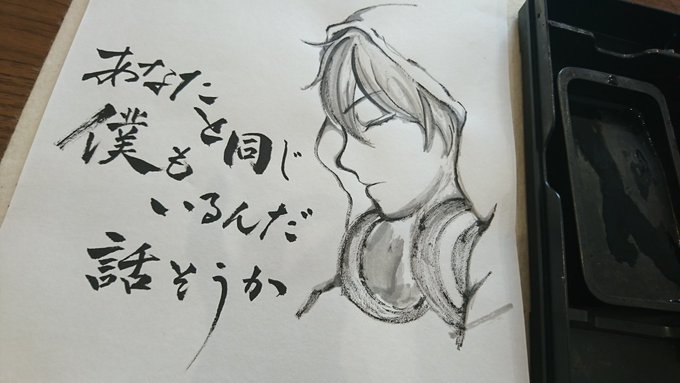 あなた
と同じ
僕も
いるんだ
話そうか